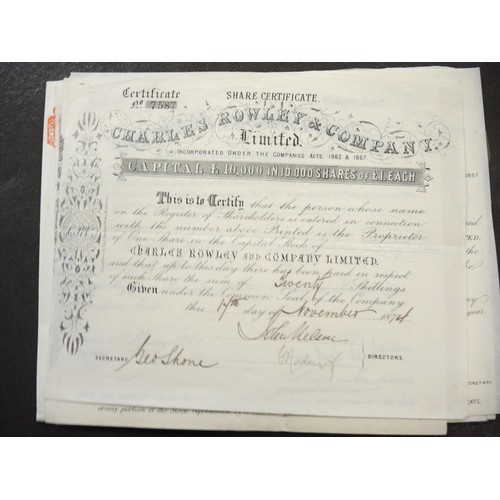 Certificate
Nº 7587
SHARE CERTIFICATE.
CHARLES ROWLEY & COMPANY.
Limited.
INCORPORATED UNDER THE COMPANIES ACTS. 1862 & 1867
CAPITAL £10,000 IN 10,000 SHARES OF £1. EACH
This is to Certify that the person whose name
on the Register of Shareholders is entered in connection
with the number above Printed is the Proprietor
of One Share in the Capital Stock of
CHARLES ROWLEY AND COMPANY LIMITED.
and that up to this day there has been paid in respect
of such Share the sum of Twenty Shillings
Given under the Common Seal of the Company
this day of November 1874
SECRETARY Geo Shone
DIRECTORS.